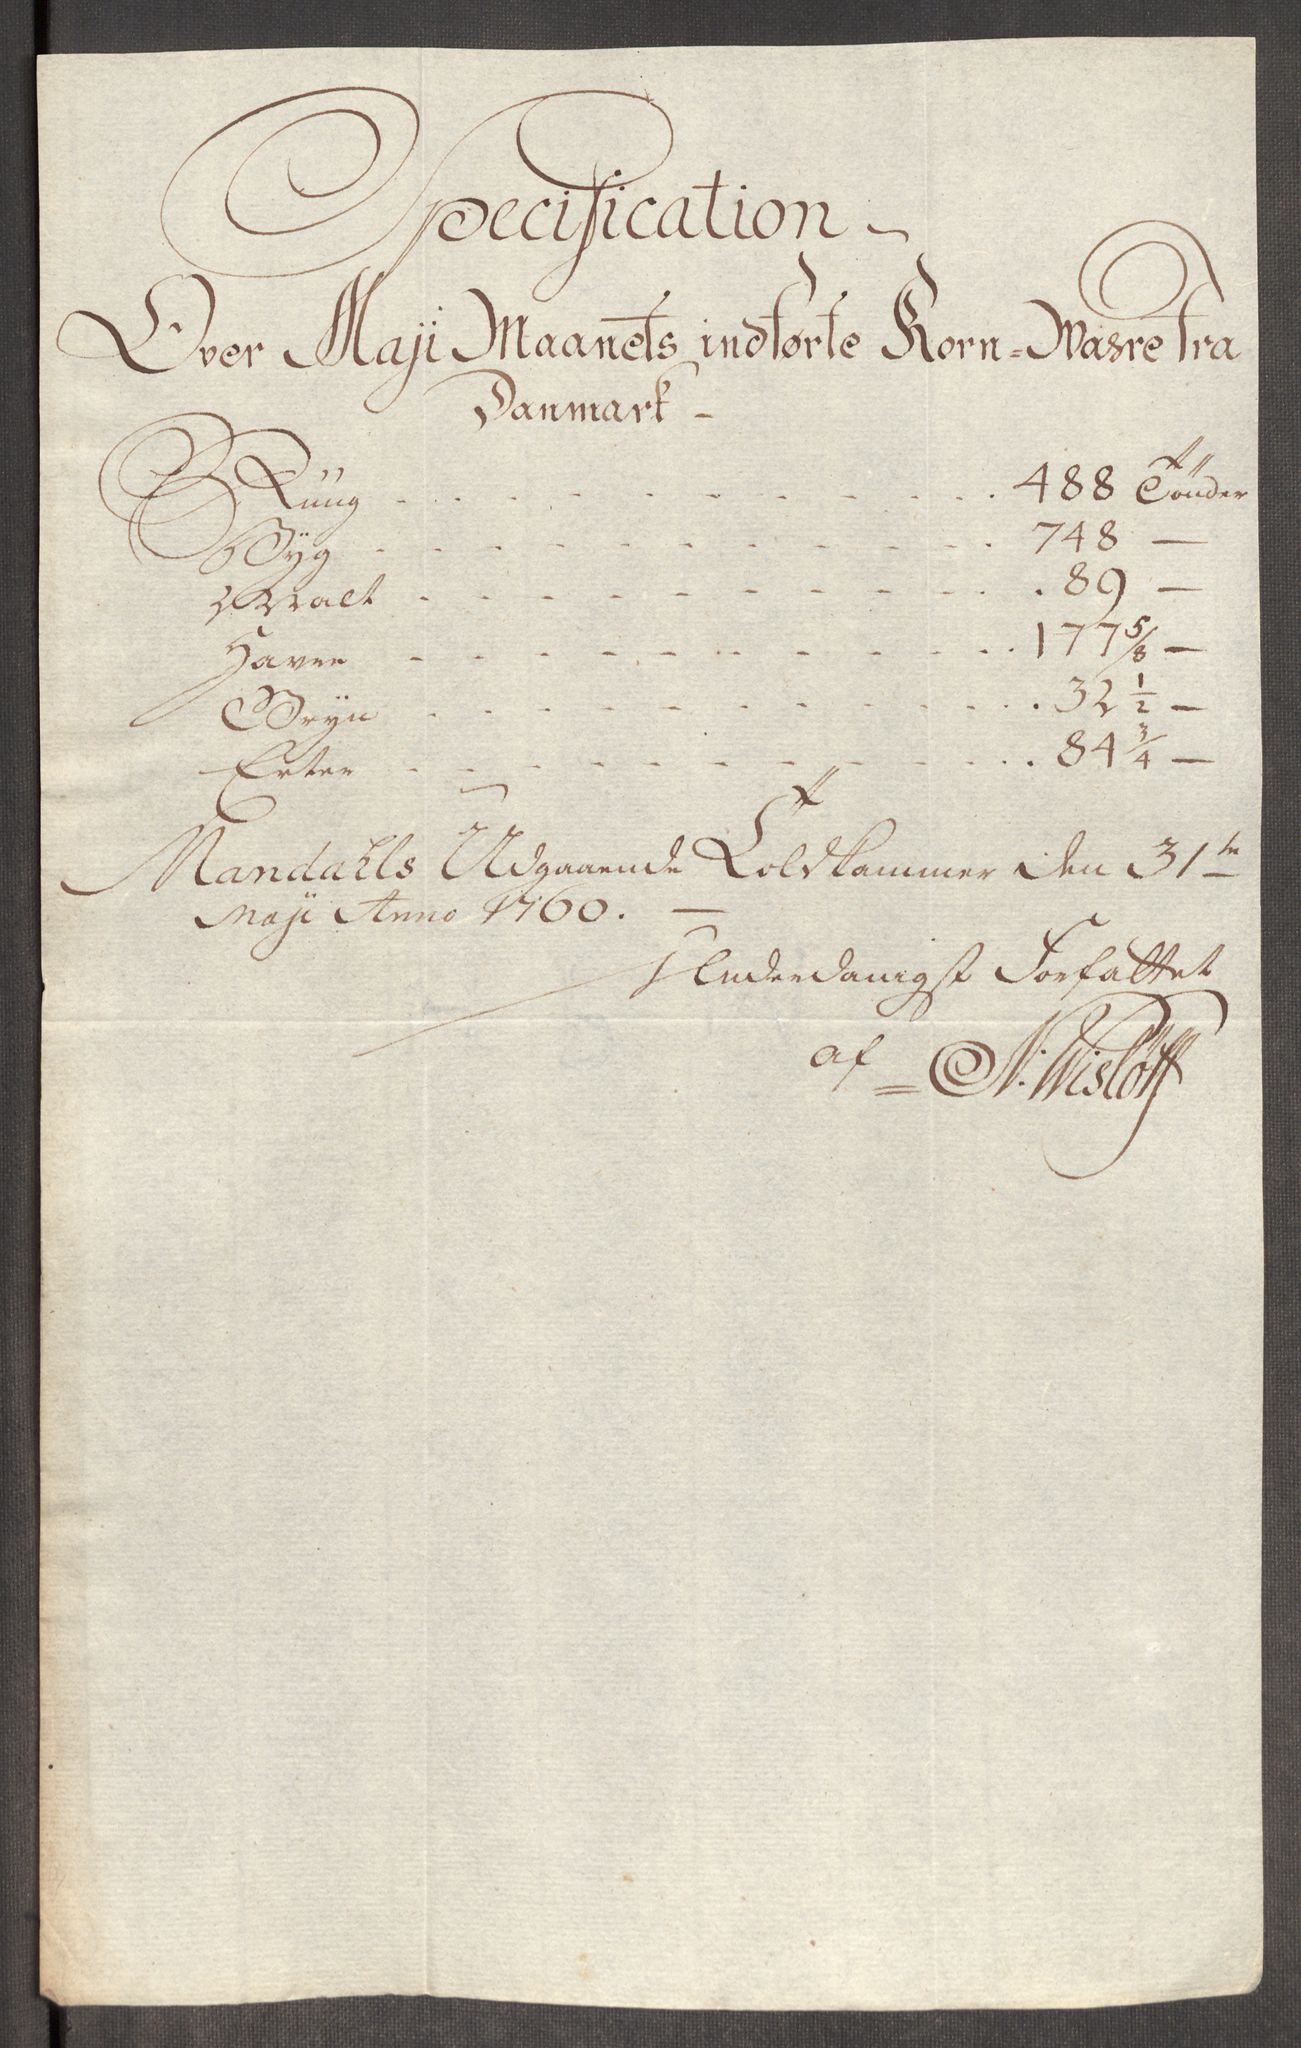 Specification
Over Maji Maanets indførte Korn=Wahre fra
Danmark
Rüüg 488 Tönder
Byg 748 —
Malt 89 —
Havre 177 5/8 —
Gryn 32 1/2 —
Erter 84 3/4 —
Mandahls Udgaaende Toldkammer den 31te
Maji Anno 1760. —
Underdanigst Forfattet
af N. Wisløff